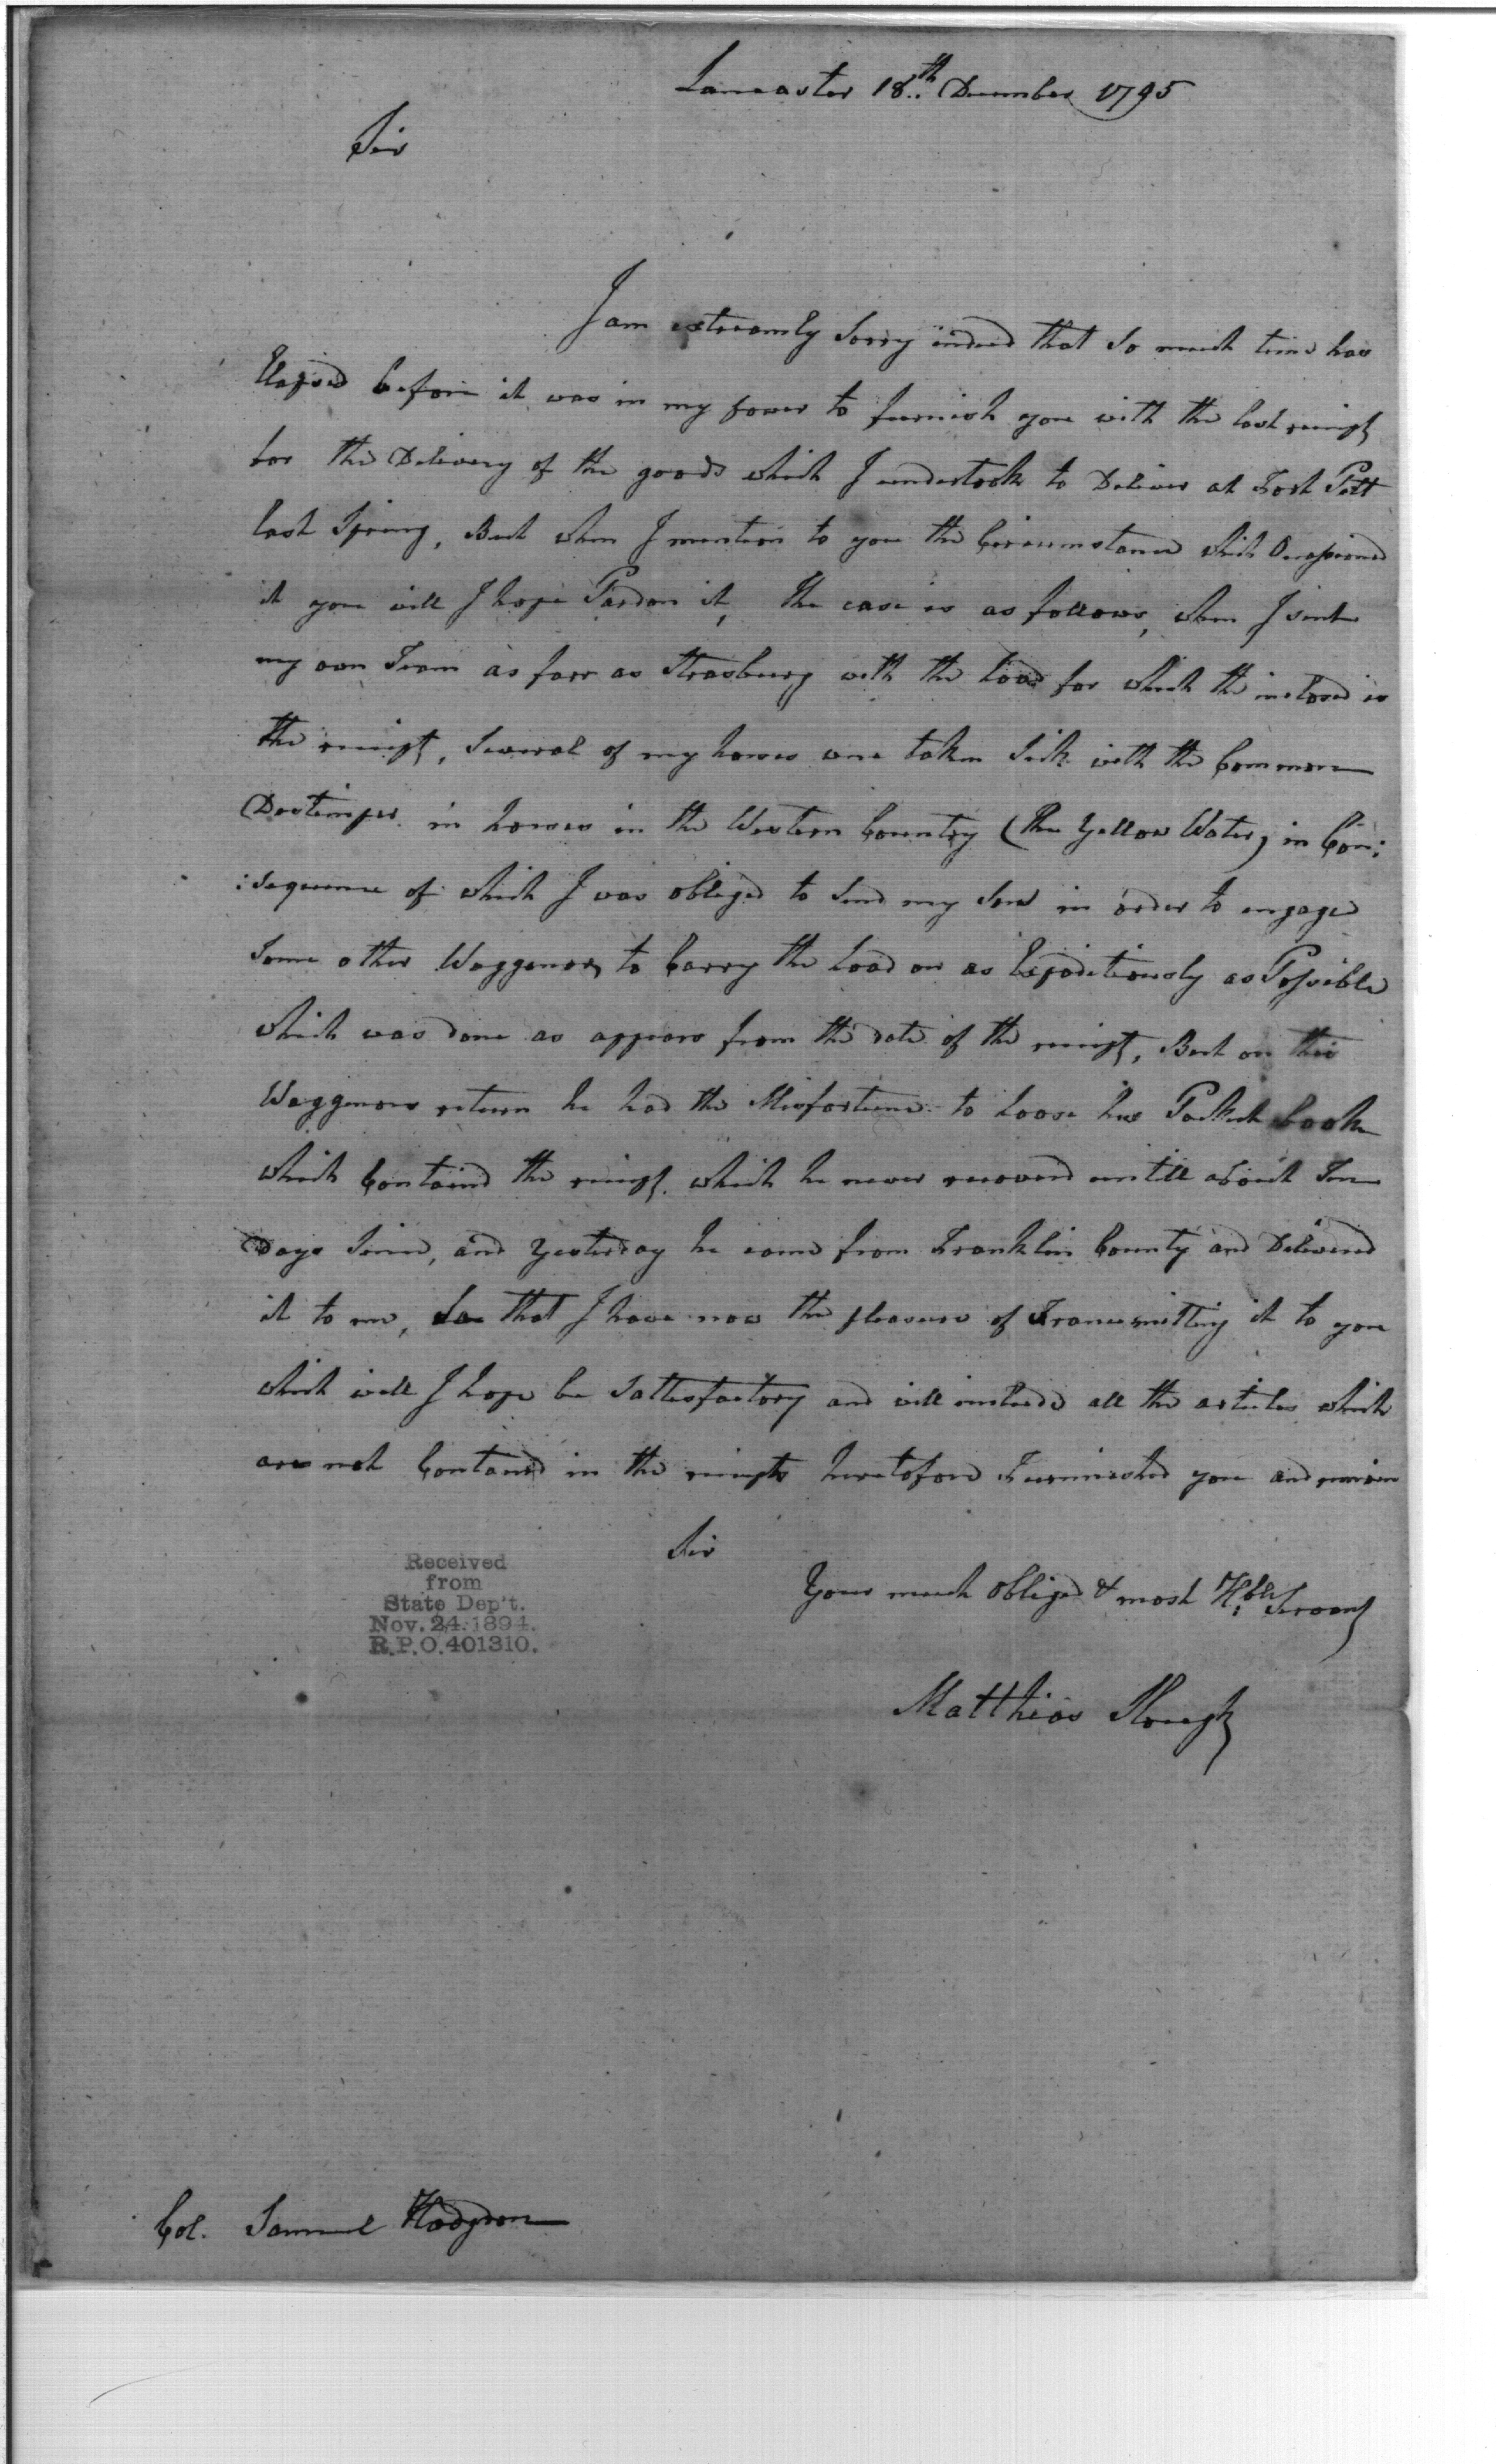 Lancaster 18th December 1795
Sir
I am extreamly sorry indeed that so much time has
Elapsed before it was in my power to furnish you with the last receipt
for the Delivery of the goods which I undertook to Deliver at Fort Pitt
last Spring, But when I mention to you the Circumstance which Occasioned
it you will I hope Pardon it, the case is as follows, when I sent
my own Team as farr as Strasburg with the Load for which the inclosed is
the receipt, Several of my horses were taken Sick with the Common
Distemper in horses in the Western Country (the Yellow Water) in Con:
:sequence of which I was obliged to Send my Son in order to engage
Some other Waggoner, to Carry the Load on as Expeditiously as Possible
which was done as appears from the date of the receipt, But on this
Waggoners return he had the Misfortune to Loose his Pocket book
which Containd the receipt, which he never recovered untill about Ten
Days Since, and Yesterday he came from Franklin County and Delivered
it to me, So that I have now the pleasure of Transmitting it to you
which will I hope be Sattisfactory and will include all the articles which
are not Contained in the receipts heretofore Furnished you and remain
Sir
Your much obliged & most Hble Servant
Matthias Slough
Received
from
State Dep't.
Nov. 24. 1894.
R.P.O. 401310.
Col. Samuel Hodgdon